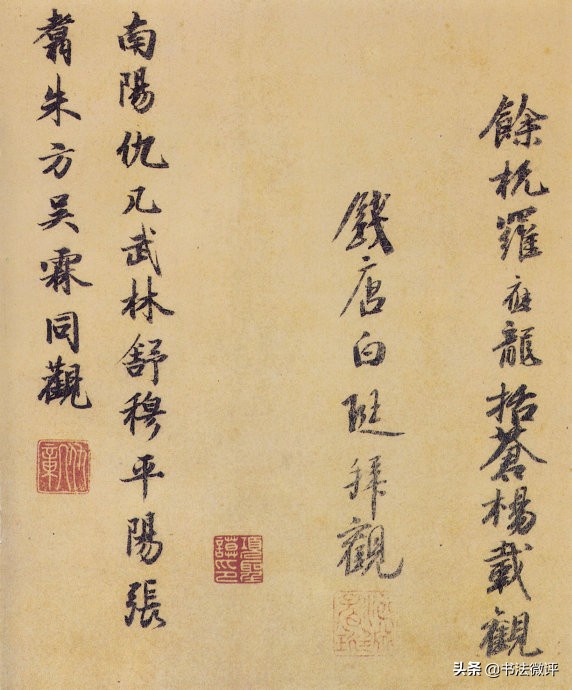 餘杭羅應龍括蒼楊載觀
錢唐白珽拜觀
南陽仇凡武林舒穆平陽張
翥朱方吳霖同觀
項聖謨印
头条 @书法微评